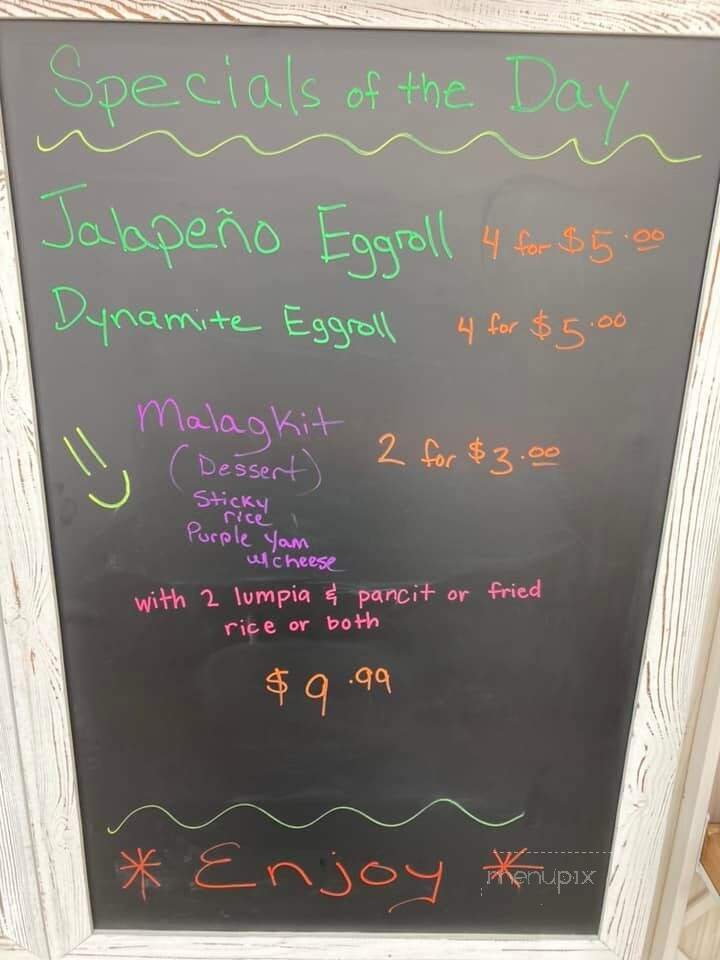 Specials of the Day
Jalapeño Eggroll 4 for $5.00
Dynamite Eggroll 4 for $5.00
Malagkit
(Dessert) 2 for $3.00
Sticky
rice
Purple Yam
w/cheese
with 2 lumpia & pancit or fried
rice or both
$9.99
* Enjoy *
menupix